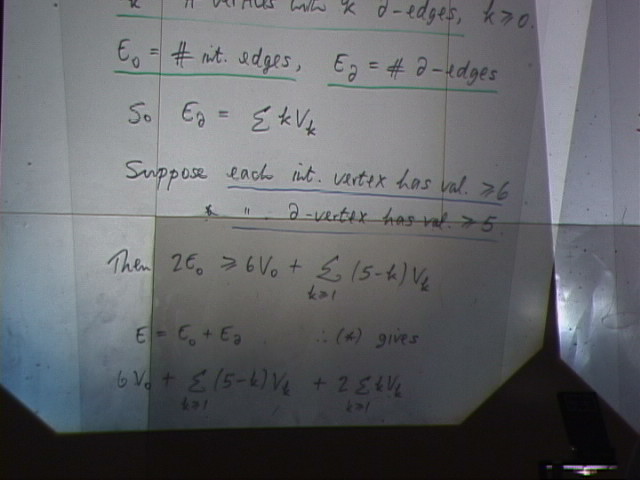 # vertices with k ∂-edges, k ≥ 0.
E₀ = # int. edges, E∂ = # ∂-edges
So E∂ = Σ kVₖ
Suppose each int. vertex has val. ≥ 6
& " ∂-vertex has val. ≥ 5.
Then 2E₀ ≥ 6V₀ + Σ_{k≥1} (5-k)Vₖ
E = E₀ + E∂ ∴ (*) gives
6V₀ + Σ_{k≥1} (5-k)Vₖ + 2 Σ_{k≥1} kVₖ